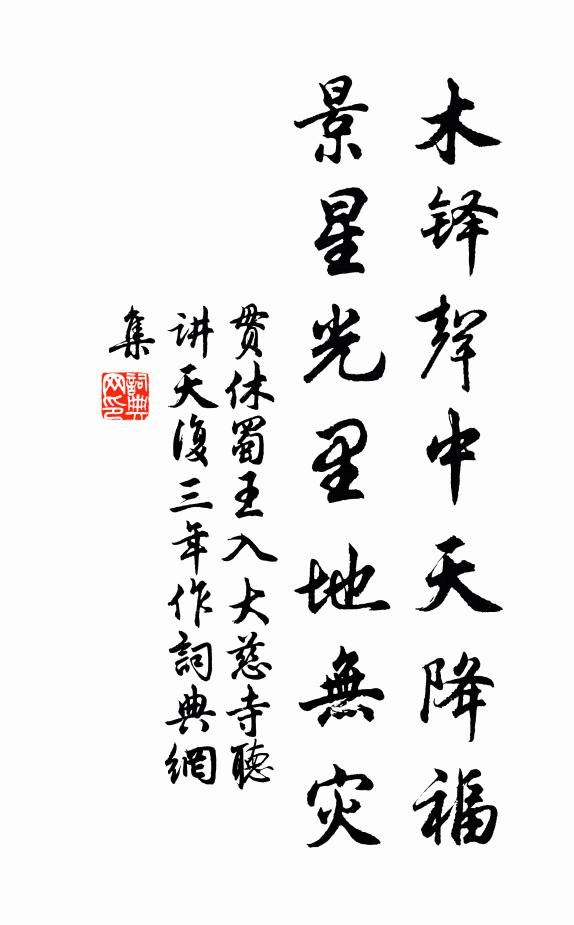 木铎聲中天降福
景星光里地無灾
贯休蜀王入大慈寺聽
讲天復三年作詞典網
集
詞典网印